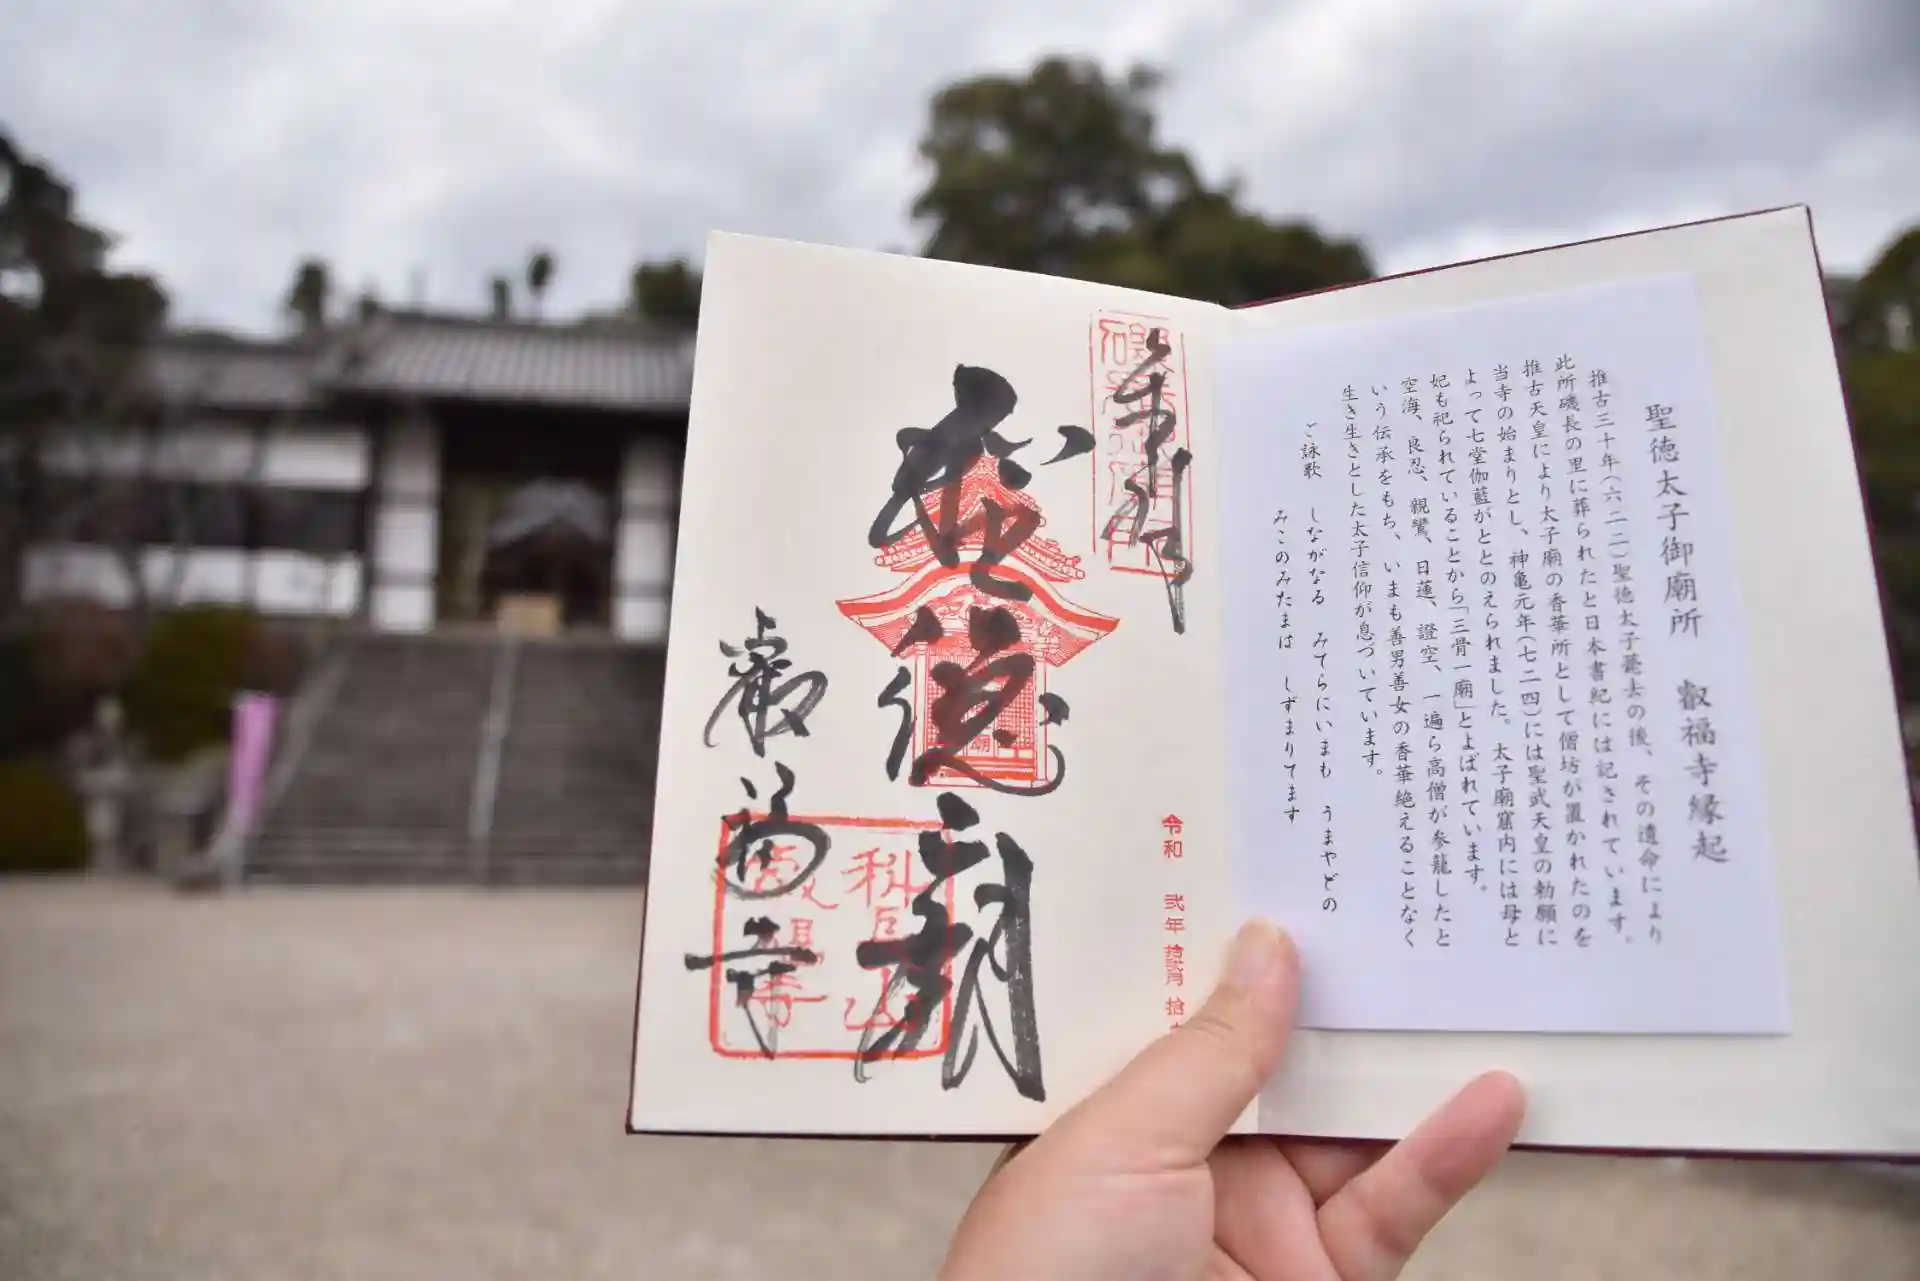 聖徳太子御廟所 叡福寺縁起
推古三十年(六二二)聖徳太子薨去の後、その遺命により
此所磯長の里に葬られたと日本書紀には記されています。
推古天皇により太子廟の香華所として僧坊が置かれたのを
当寺の始まりとし、神亀元年(七二四)には聖武天皇の勅願に
よって七堂伽藍がととのえられました。太子廟窟内には母と
妃も祀られていることから「三骨一廟」とよばれています。
空海、良忍、親鸞、日蓮、證空、一遍ら高僧が参籠したと
いう伝承をもち、いまも善男善女の香華絶えることなく
生き生きとした太子信仰が息づいています。
ご詠歌 しながなる みてらにいまも うまやどの
みこのみたまは しずまりてます
奉拝
令和 弐年 拾弐月 拾
聖徳廟
叡福寺